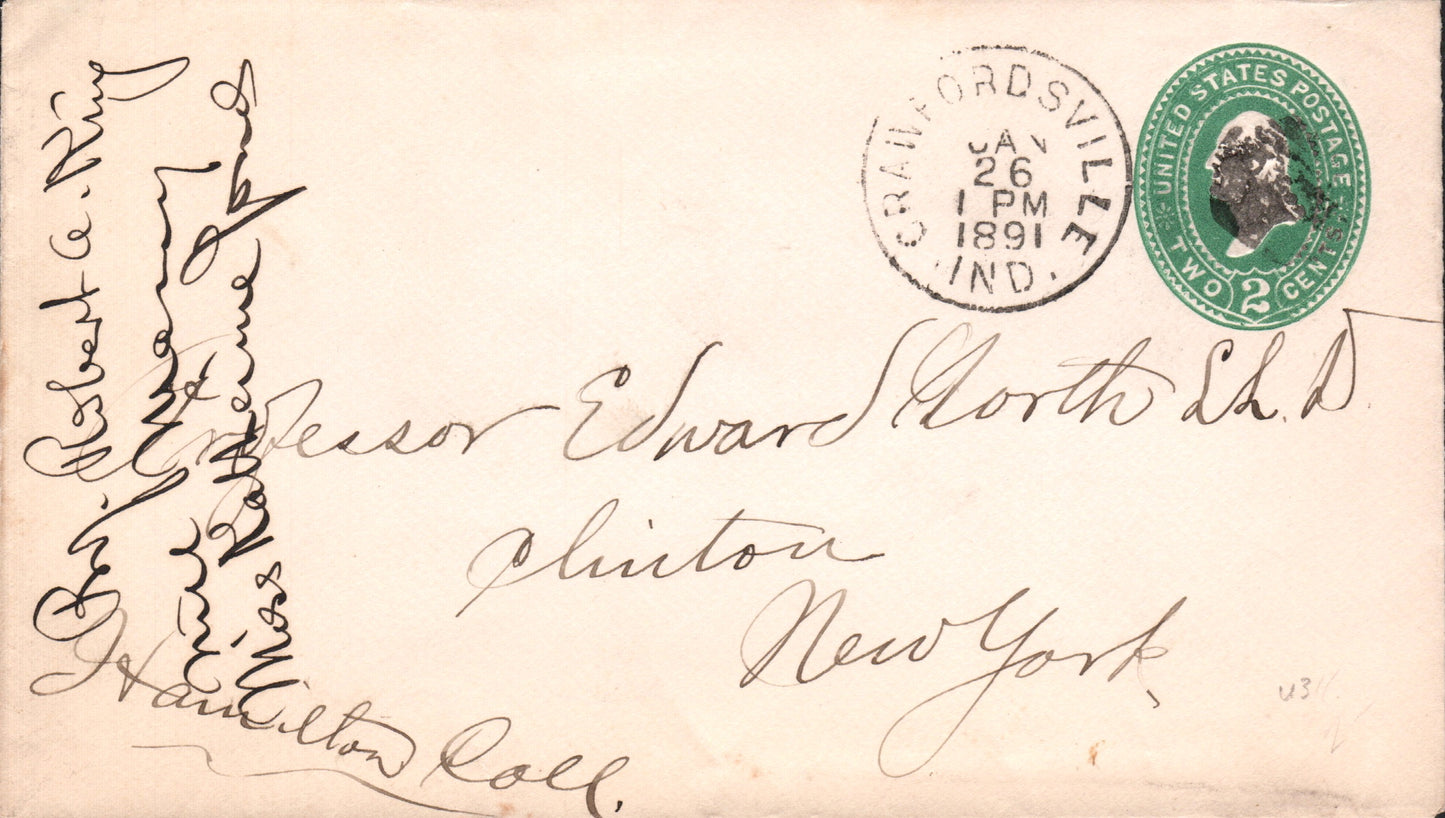 CRAWFORDSVILLE
JAN
26
1 PM
1891
IND.
UNITED STATES POSTAGE
TWO 2 CENTS
Professor Edward North Lh. D.
Clinton
New York
Hamilton Coll.
Robert A. King
Miss Katherine Jones
U311